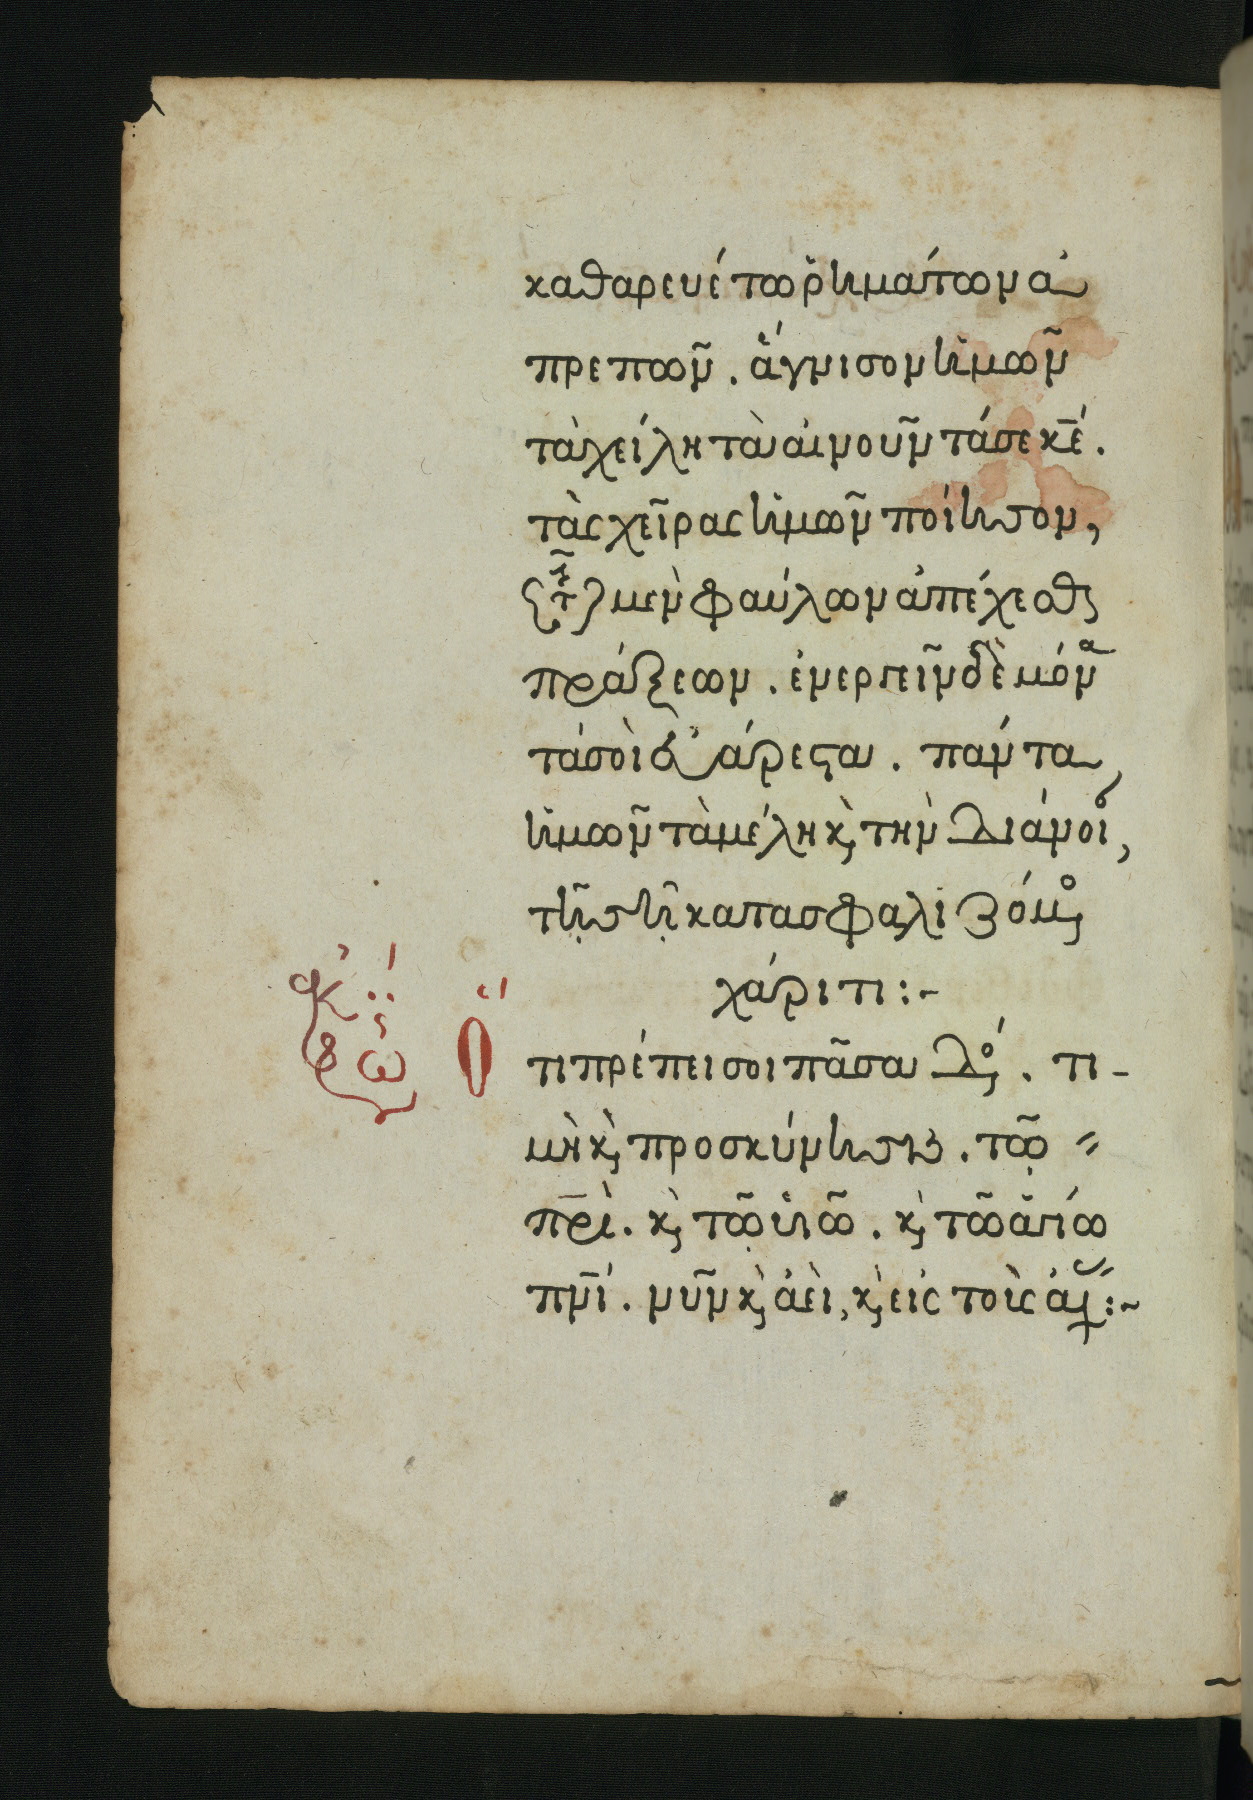 καθαρευέτω ῥημάτων ἀ
πρεπῶν. ἅγνισον ἡμῶν
τὰ χείλη τὰ αἰνοῦντά σε κε̅.
τὰς χεῖρας ἡμῶν ποίησον,
τῶν μὲν φαύλων ἀπέχεσθ
πράξεων. ἐνεργεῖν δὲ μόνα
τὰ σοὶ εὐάρεστα. πάντα
ἡμῶν τὰ μέλη κ τὴν διάνοι,
τῇ σῇ κατασφαλιζόμ
χάριτι:~
Ὅ τι πρέπει σοι πᾶσα δό. τι-
μὴ κ προσκύνησις. τῷ
πρὶ. κ τῷ υἱῷ. κ τῷ ἁγίω
πνί. νῦν κ ἀεὶ, κ εἰς τοὺς αἰ:~